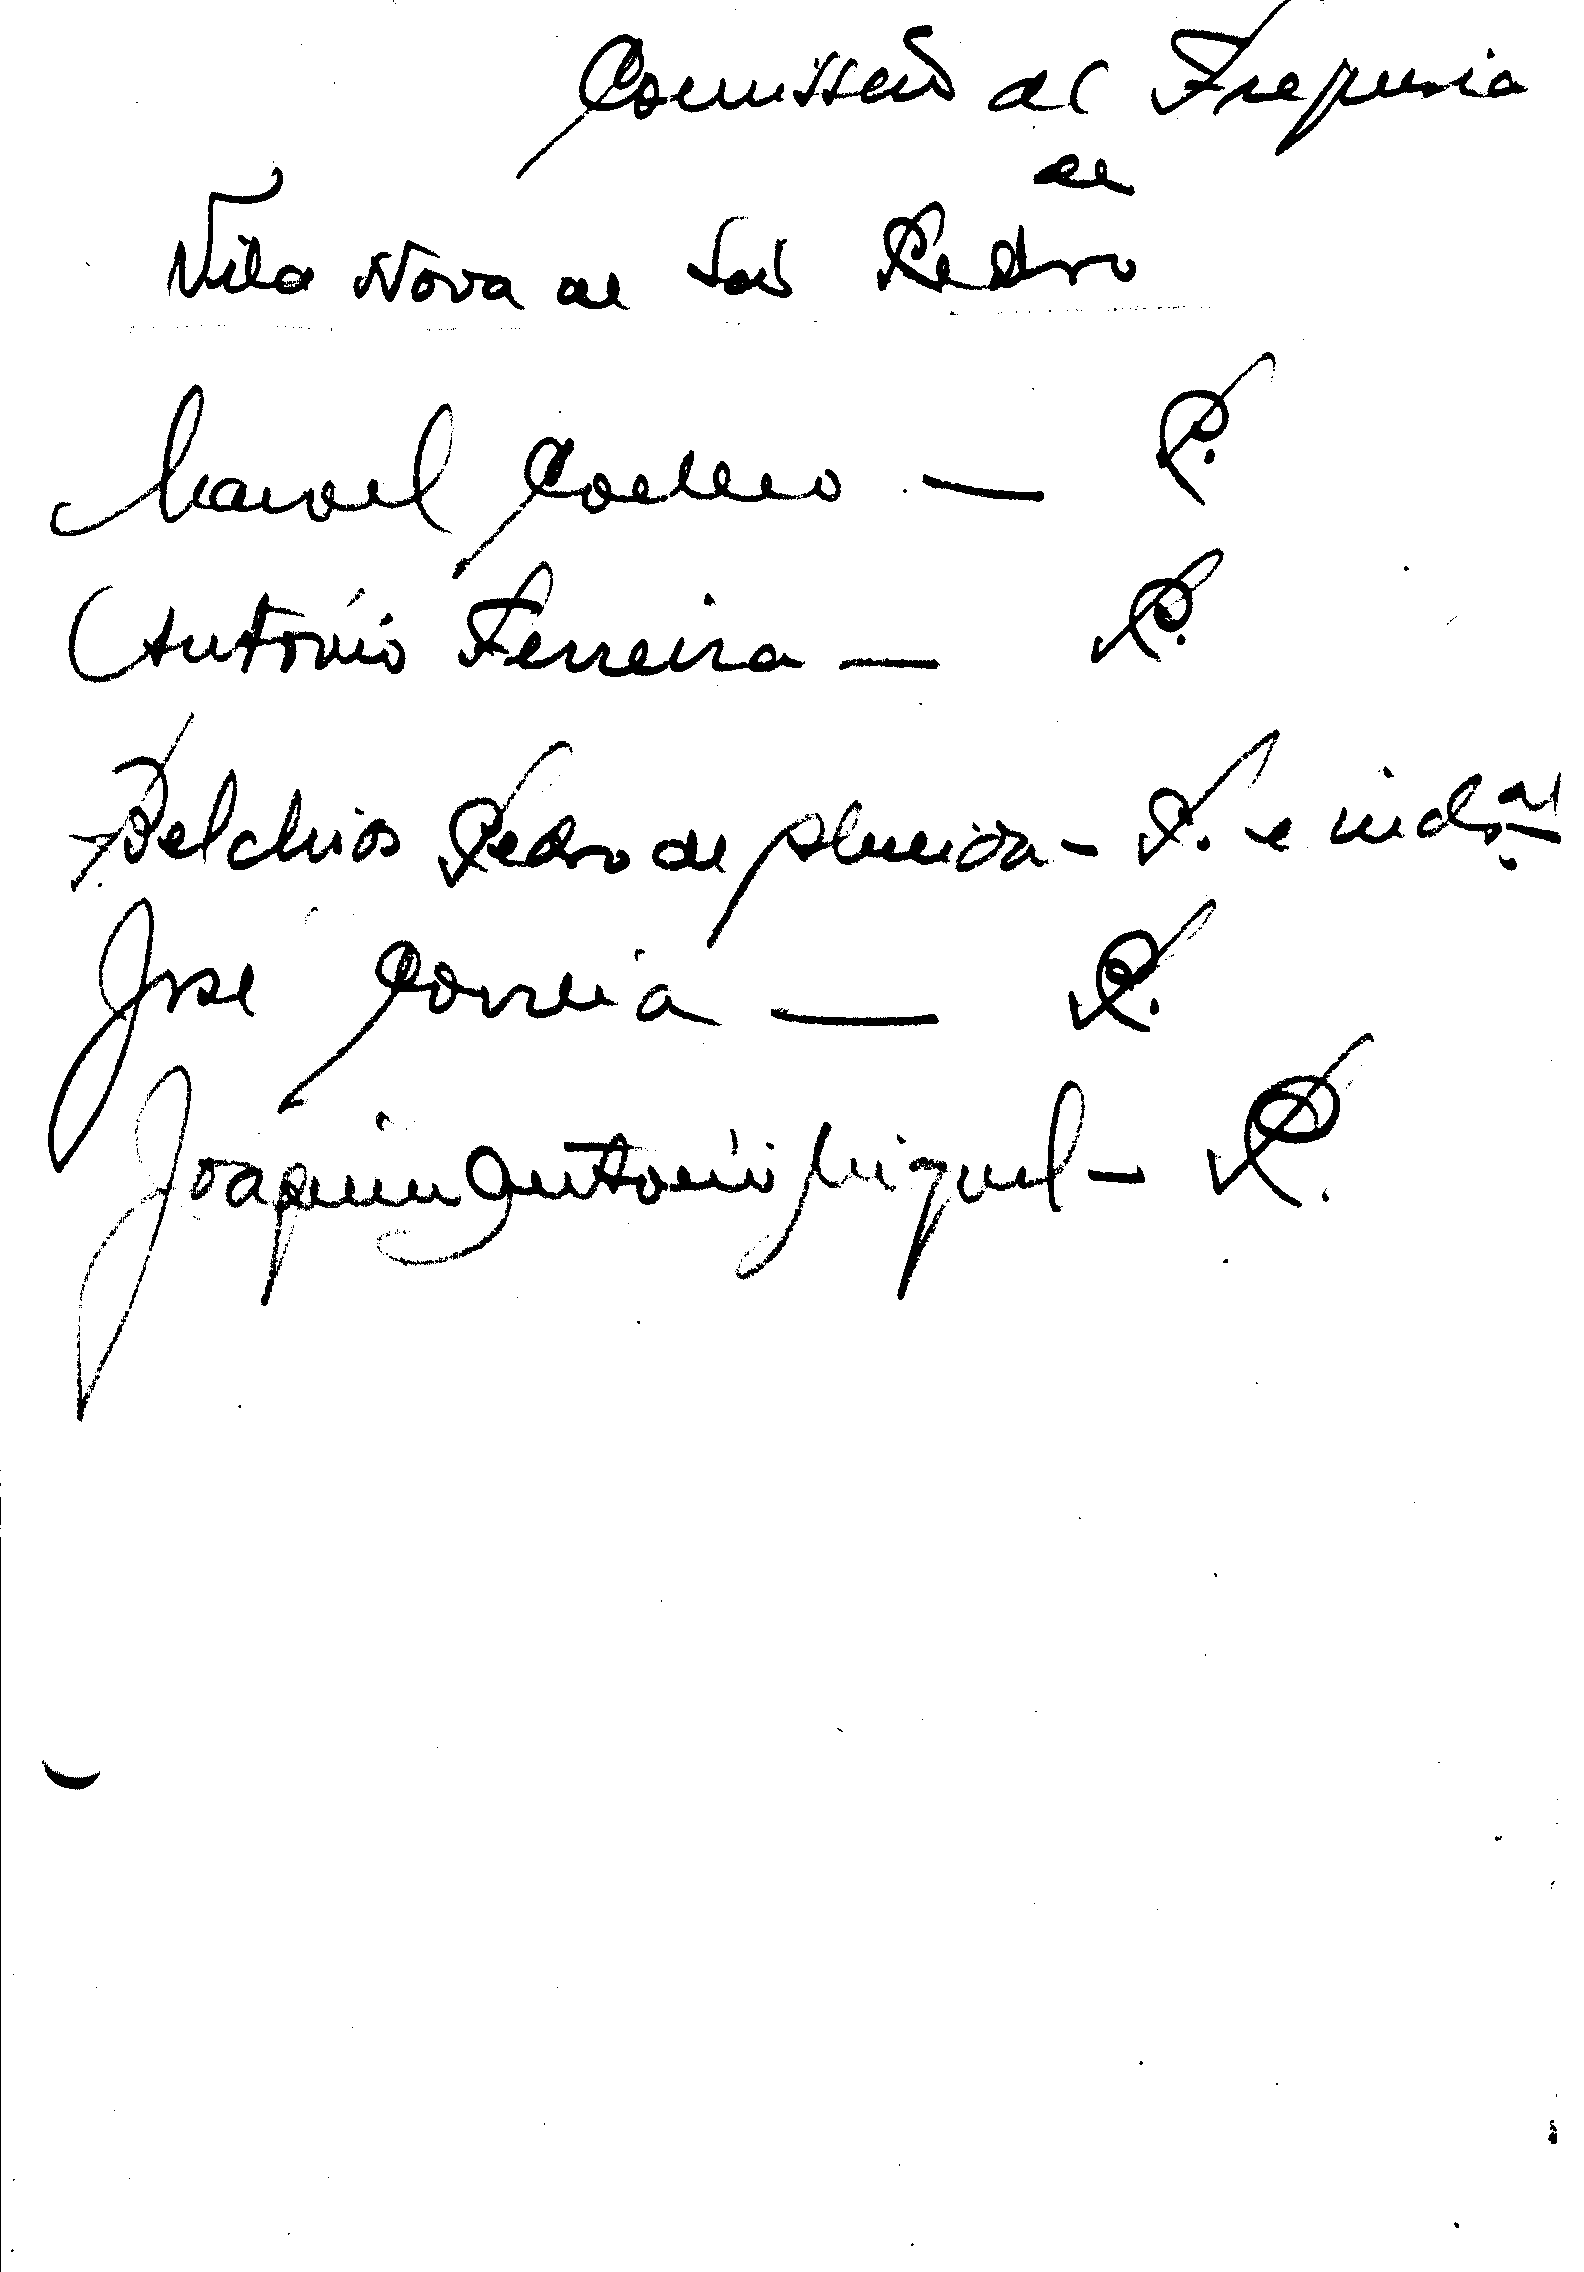 Comissão de Freguesia
de
Vila Nova de São Pedro
Manoel Coelho — P.
António Ferreira — P.
Belchior Pedro de Almeida — P. e indal
José Correia — P.
Joaquim António Miguel — P.